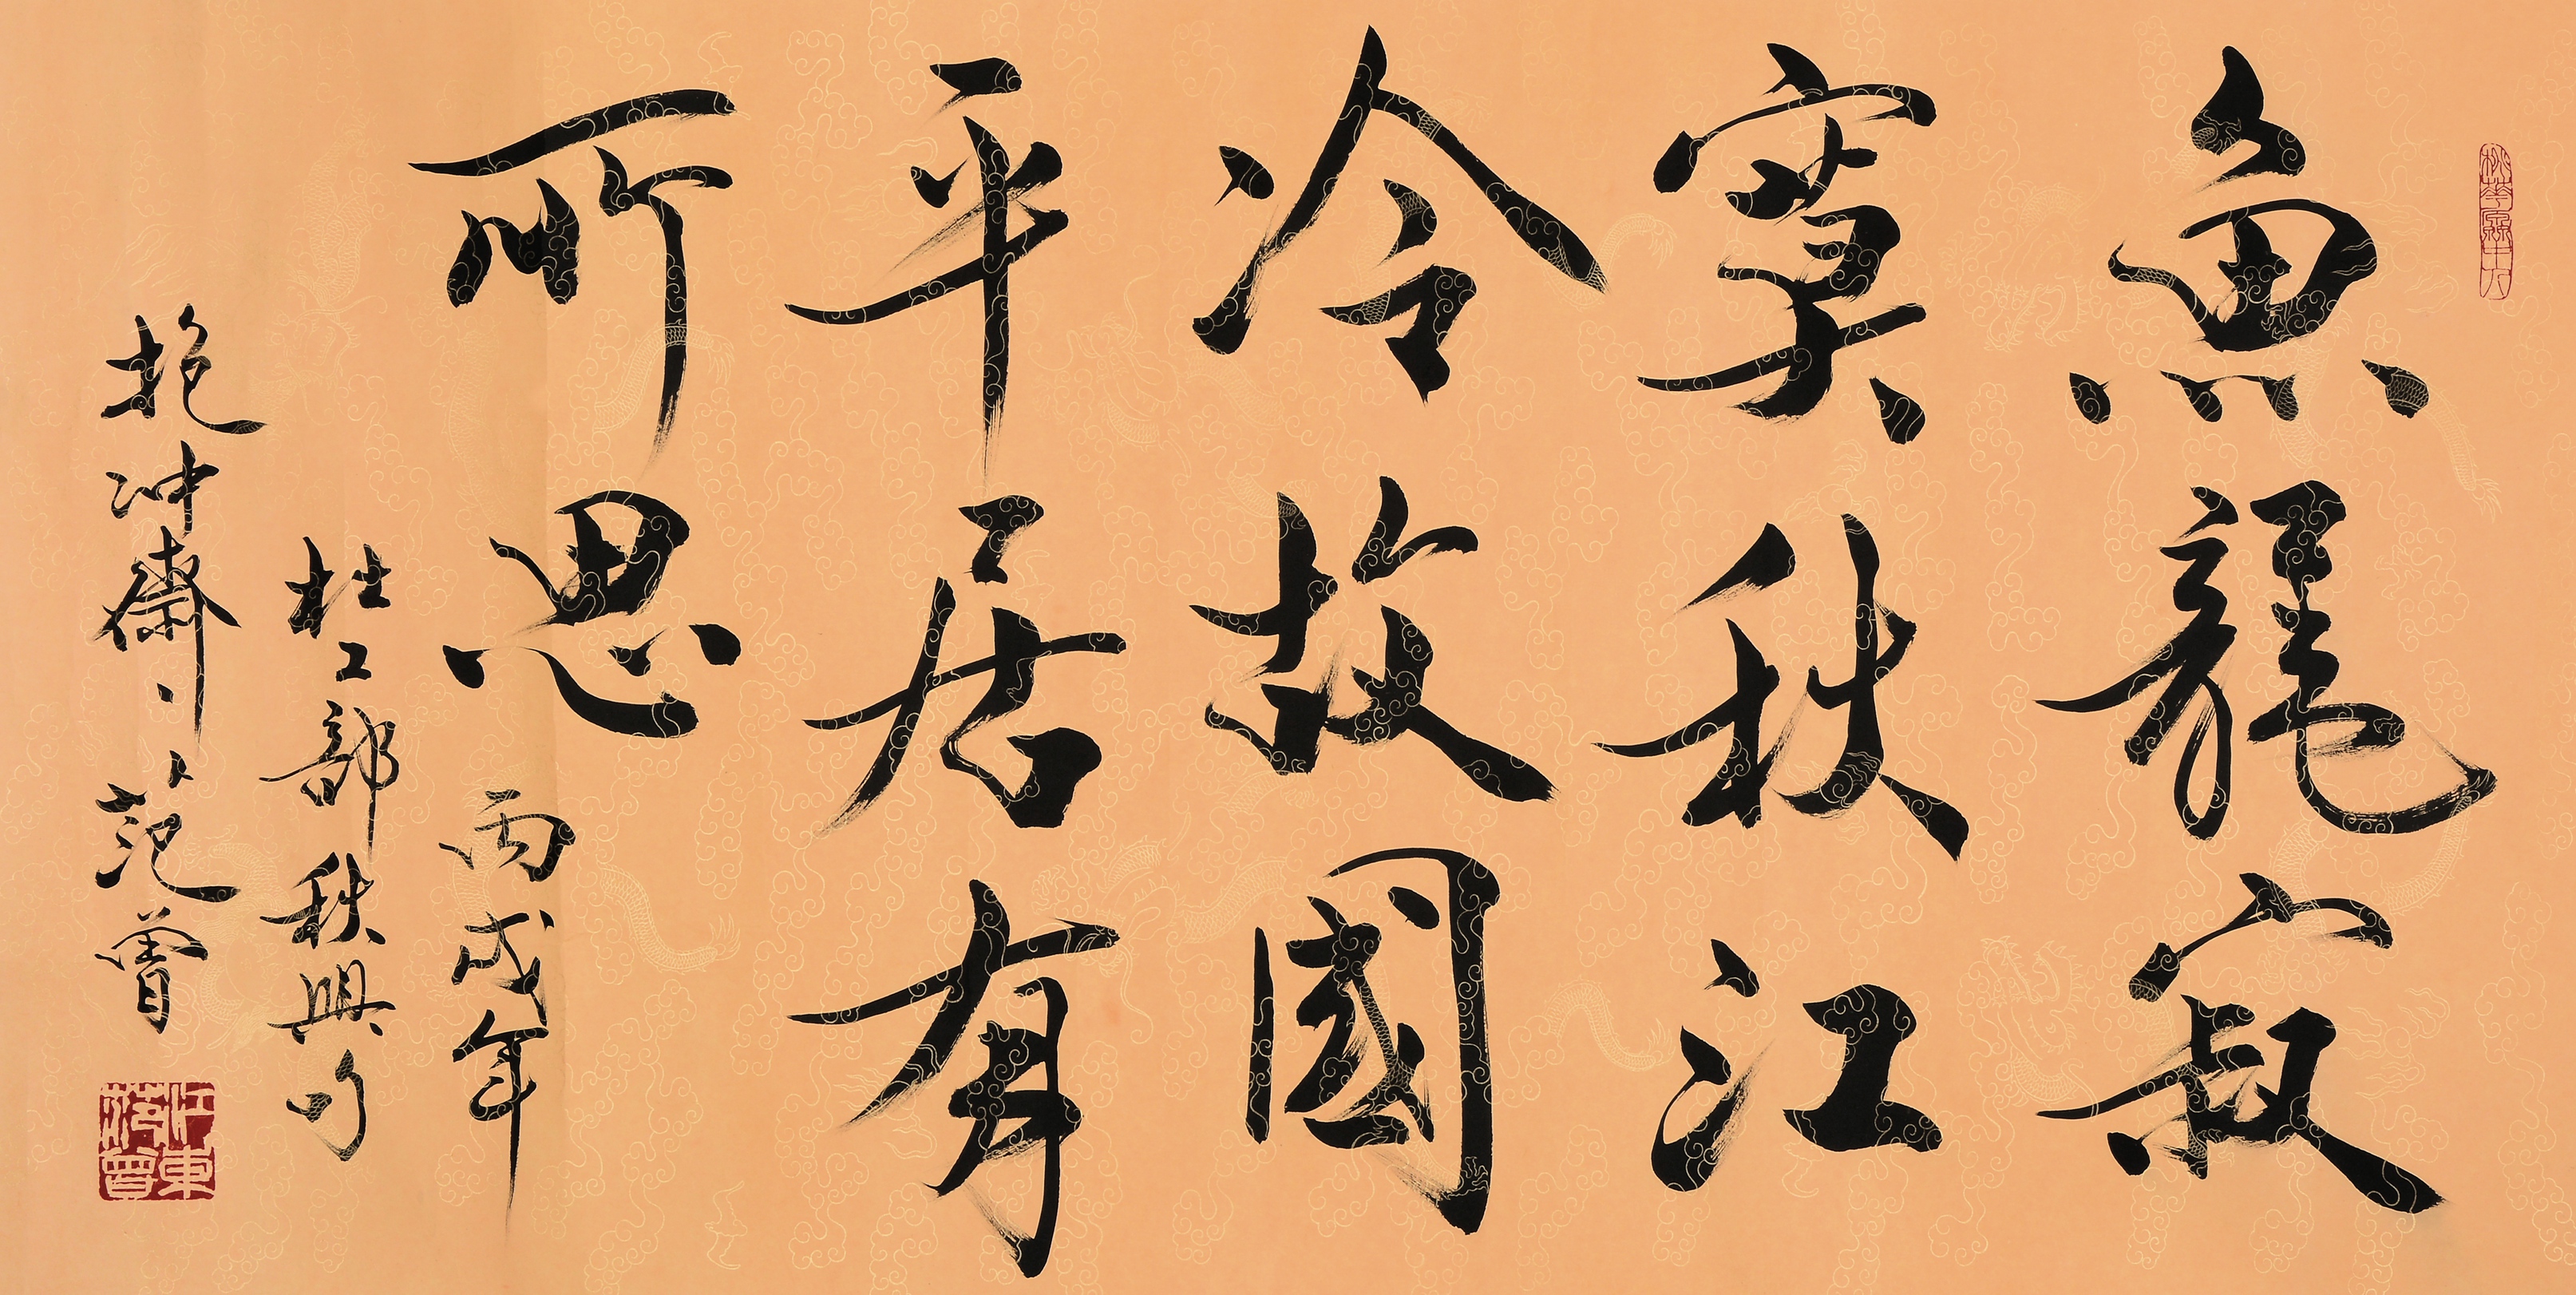 魚龍寂
寞秋江
冷故國
平居有
所思
丙戌年
杜工部秋興句
抱冲齋 十翼 范曾
江東范曾